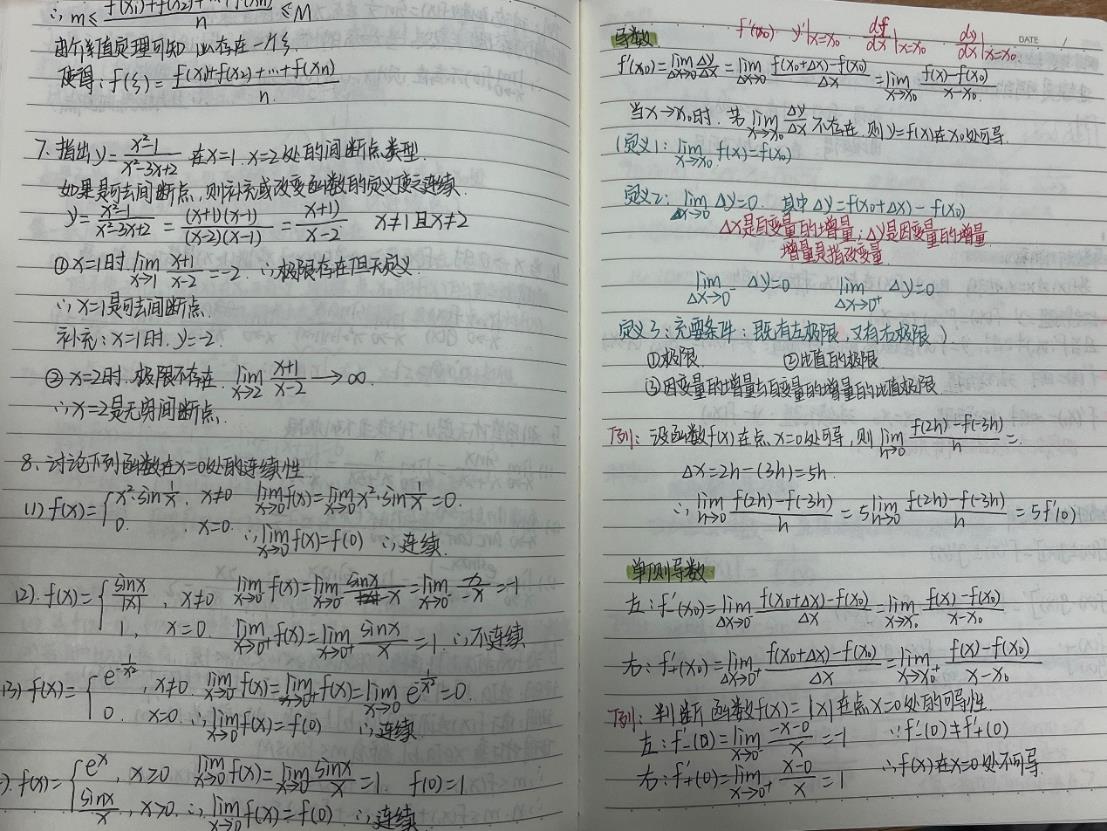 ∴ m ≤ f(x₁)+f(x₂)+…+f(xn) / n ≤ M
由介值定理可知 必存在一个ξ
使得: f(ξ) = f(x₁)+f(x₂)+…+f(xn) / n.
7. 指出 y = x²-1 / x²-3x+2 在x=1. x=2处的间断点类型.
如果是可去间断点, 则补充或改变函数的定义使之连续.
y = x²-1 / x²-3x+2 = (x+1)(x-1) / (x-2)(x-1) = x+1) / x-2 x≠1且x≠2
① x=1时 lim x→1 x+1 / x-2 = -2. ∴极限存在但无定义.
∴ x=1是可去间断点.
补充: x=1时. y=-2.
② x=2时. 极限不存在. lim x→2 x+1 / x-2 → ∞.
∴ x=2是无穷间断点.
8. 讨论下列函数在x=0处的连续性
(1) f(x) = { x²·sin 1/x, x≠0 lim x→0 f(x) = lim x→0 x²·sin 1/x = 0.
0. x=0. ∴ lim x→0 f(x) = f(0) ∴连续.
(2). f(x) = { sinx / |x|, x≠0 lim x→0⁻ f(x) = lim x→0⁻ sinx / -x = lim x→0⁻ x / -x = -1
1, x=0. lim x→0⁺ f(x) = lim x→0⁺ sinx / x = 1. ∴不连续
(3) f(x) = { e^(-1/x²), x≠0. lim x→0⁻ f(x) = lim x→0⁺ f(x) = lim x→0 e^(-1/x²) = 0.
0. x=0. ∴ lim x→0 f(x) = f(0) ∴连续.
). f(x) = { eˣ, x≥0 lim x→0 f(x) = lim x→0 sinx / x = 1. f(0)=1
sinx / x, x>0. ∴ lim x→0 f(x) = f(0) ∴连续
导数 f'(x₀) y'|x=x₀ df/dx |x=x₀ dy/dx |x=x₀. DATE /
f'(x₀) = lim Δx→0 Δy/Δx = lim Δx→0 f(x₀+Δx)-f(x₀) / Δx = lim x→x₀ f(x)-f(x₀) / x-x₀.
当x→x₀时. 若 lim x→x₀ Δy/Δx 不存在, 则y=f(x)在x₀处可导.
(定义1: lim x→x₀ f(x) = f(x₀)
定义2: lim Δx→0 Δy=0. 其中Δy=f(x₀+Δx)-f(x₀)
Δx是自变量的增量; Δy是因变量的增量
增量是指改变量
lim Δx→0⁻ Δy=0 lim Δx→0⁺ Δy=0
定义3: 充要条件: 既有左极限, 又有右极限 )
①极限 ②比值的极限
③因变量的增量与自变量的增量的比值极限
例: 设函数f(x)在点x=0处可导, 则 lim h→0 f(2h)-f(-3h) / h = .
Δx=2h-(3h)=5h.
∴ lim h→0 f(2h)-f(-3h) / h = 5 lim h→0 f(2h)-f(-3h) / h = 5f'(0)
单侧导数
左: f'₋(x₀) = lim Δx→0⁻ f(x₀+Δx)-f(x₀) / Δx = lim x→x₀⁻ f(x)-f(x₀) / x-x₀
右: f'₊(x₀) = lim Δx→0⁺ f(x₀+Δx)-f(x₀) / Δx = lim x→x₀⁺ f(x)-f(x₀) / x-x₀
例: 判断函数f(x)=|x|在点x=0处的可导性.
左: f'₋(0) = lim x→0⁻ -x-0 / x = -1 ∵ f'₋(0)≠f'₊(0)
右: f'₊(0) = lim x→0⁺ x-0 / x = 1 ∴f(x)在x=0处不可导.